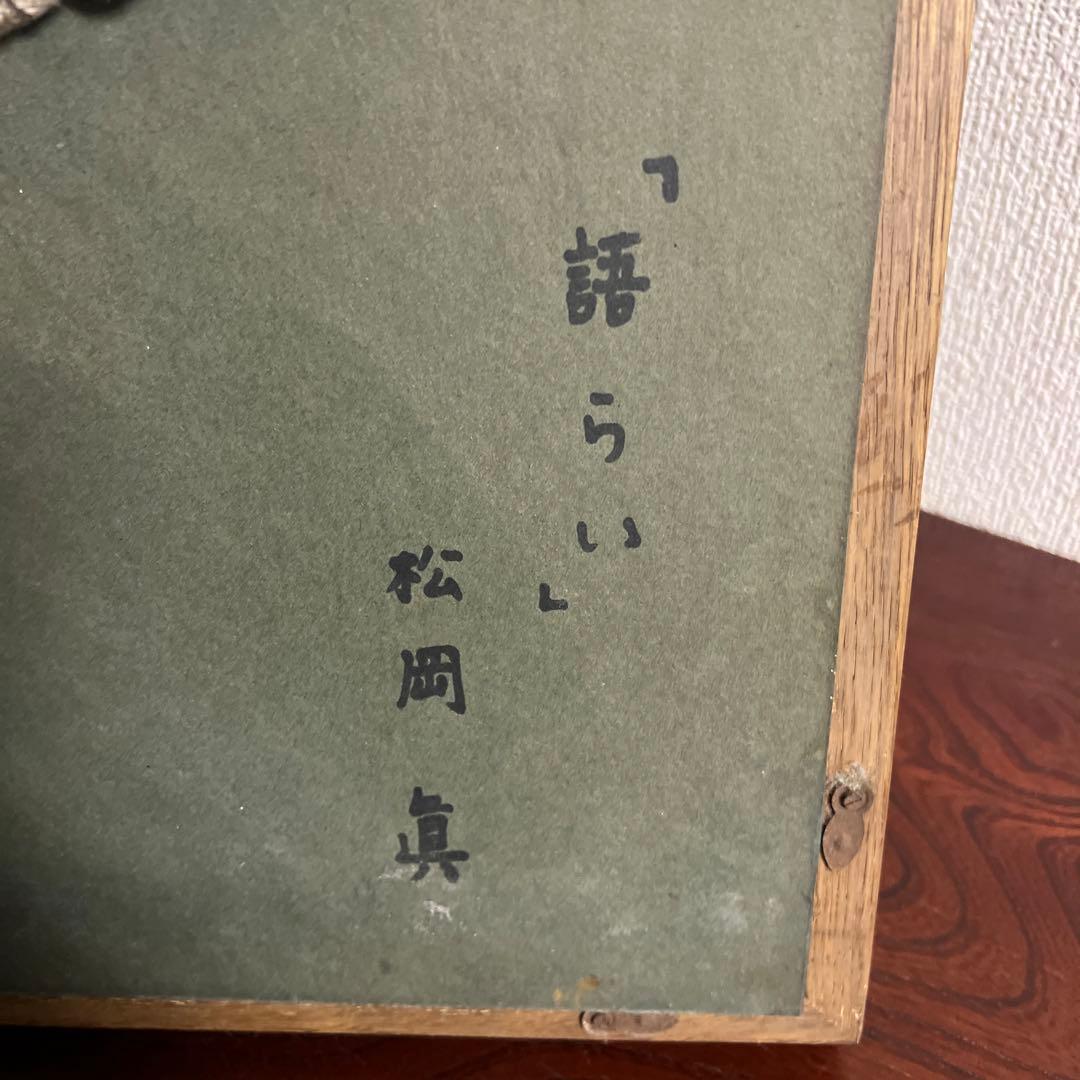 「語らい」
松岡眞